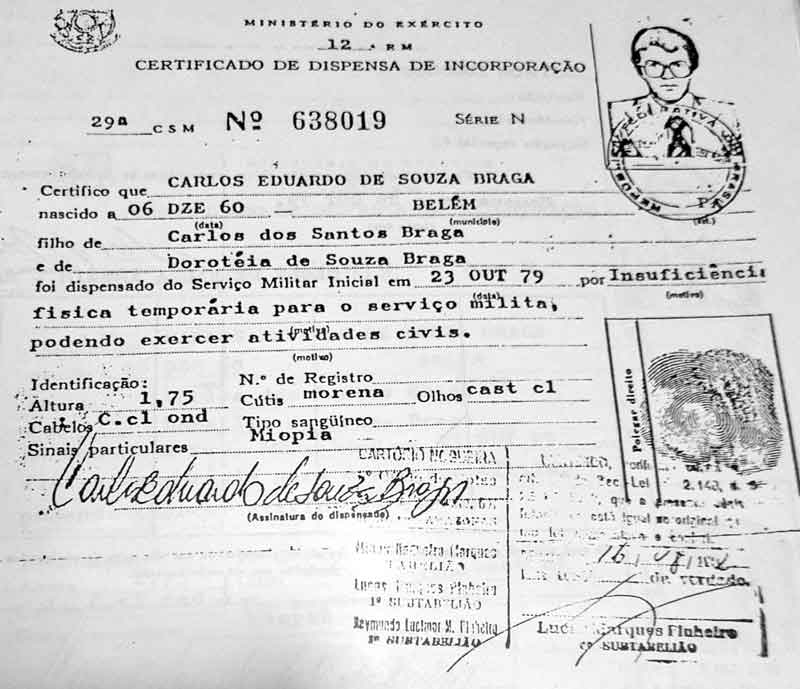 MINISTÉRIO DO EXÉRCITO
12 ª RM
CERTIFICADO DE DISPENSA DE INCORPORAÇÃO
29ª CSM Nº 638019 SÉRIE N
Certifico que CARLOS EDUARDO DE SOUZA BRAGA
nascido a 06 DZE 60 — BELÉM PA
(data) (município) (est.)
filho de Carlos dos Santos Braga
e de Dorotéia de Souza Braga
foi dispensado do Serviço Militar Inicial em 23 OUT 79 por Insuficiência
(data) (motivo)
fisica temporária para o serviço milita,
(motivo)
podendo exercer atividades civis.
(motivo)
Identificação: N.º de Registro
Altura 1,75 Cútis morena Olhos cast cl
Cabelos C.cl ond Tipo sangüíneo
Sinais particulares Miopia
Polegar direito
Carlos Eduardo de Souza Braga
(Assinatura do dispensado)
CARTÓRIO NOGUEIRA
AMAZONAS
Nogueira Marques
TABELIÃO
Lucas Marques Pinheiro
1º SUBTABELIÃO
Raymundo Lucimar M. Pinheiro
2º SUBTABELIÃO
Dec-Lei 2.148, de
que a presente
está igual ao original
16
da verdade.
Marques Pinheiro
SUBTABELIÃO